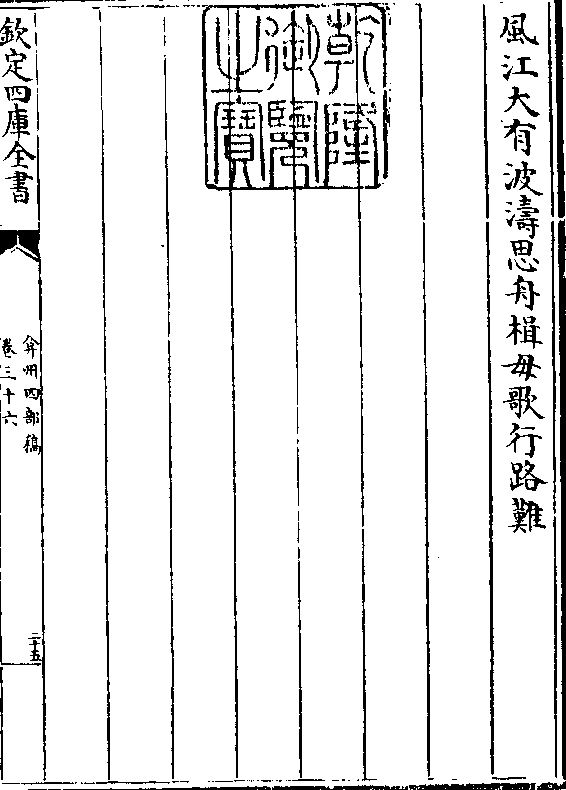 風江大有波濤思舟楫毋歌行路難
乾隆
御覽
之寶
欽定四庫全書
弇州四部稿
卷三十六
二十五